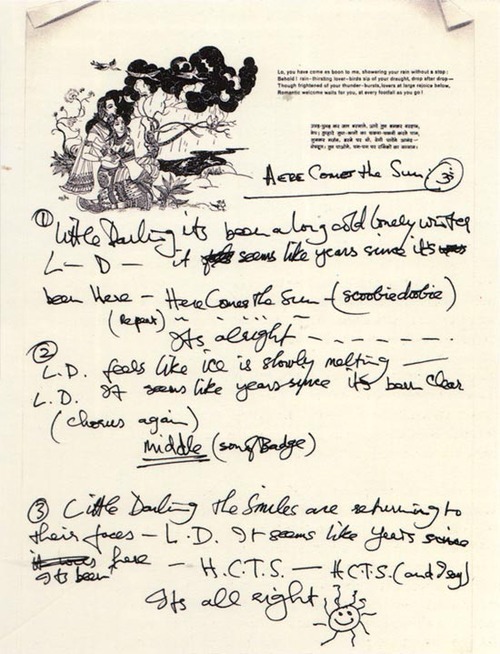 Lo, you have come as boon to me, showering your rain without a stop:
Behold! rain-thirsting lover-birds sip of your draught, drop after drop—
Though frightened of your thunder-bursts, lovers at large rejoice below,
Romantic welcome waits for you, at every footfall as you go!
HERE Comes the Sun. ③
① Little Darling its been a long cold lonely winter
L — D — it seems like years since it's
been Here — Here Comes the Sun — (scoobie doobie)
(Repeat)
Its alright - - - - - - -
② L.D. feels like ice is slowly melting —
L.D. It seems like years since its been clear
(chorus again)
Middle (song Badge)
③ Little Darling the Smiles are returning to
their faces — L.D. It seems like years since
it was here — H.C.T.S. — H.C.T.S. (and I say)
Its been
Its all right